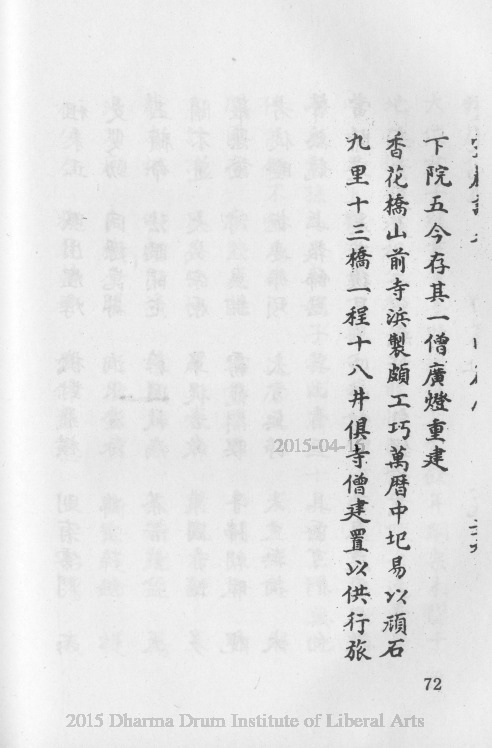 下院五今存其一僧廣燈重建
香花橋山前寺浜製頗工巧萬曆中圮易以頑石
九里十三橋一程十八井俱寺僧建置以供行旅
72
2015-04-1
2015 Dharma Drum Institute of Liberal Arts